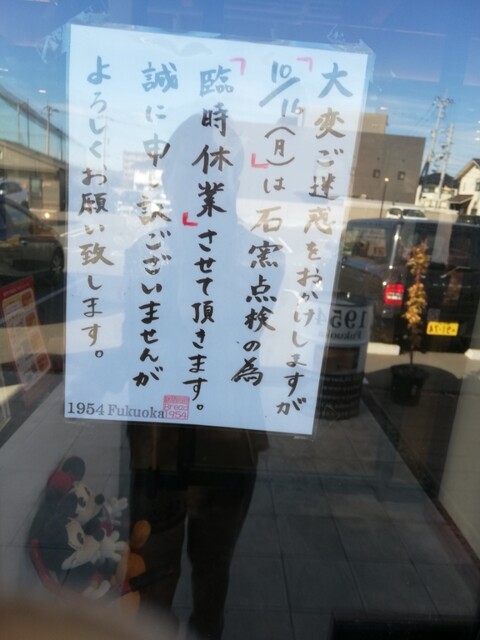 大変ご迷惑をおかけしますが
「10/16(月)」は石窯点検の為
「臨時休業」させて頂きます。
誠に申し訳ございませんが
よろしくお願い致します。
1954 Fukuoka
Bread
1954
1954